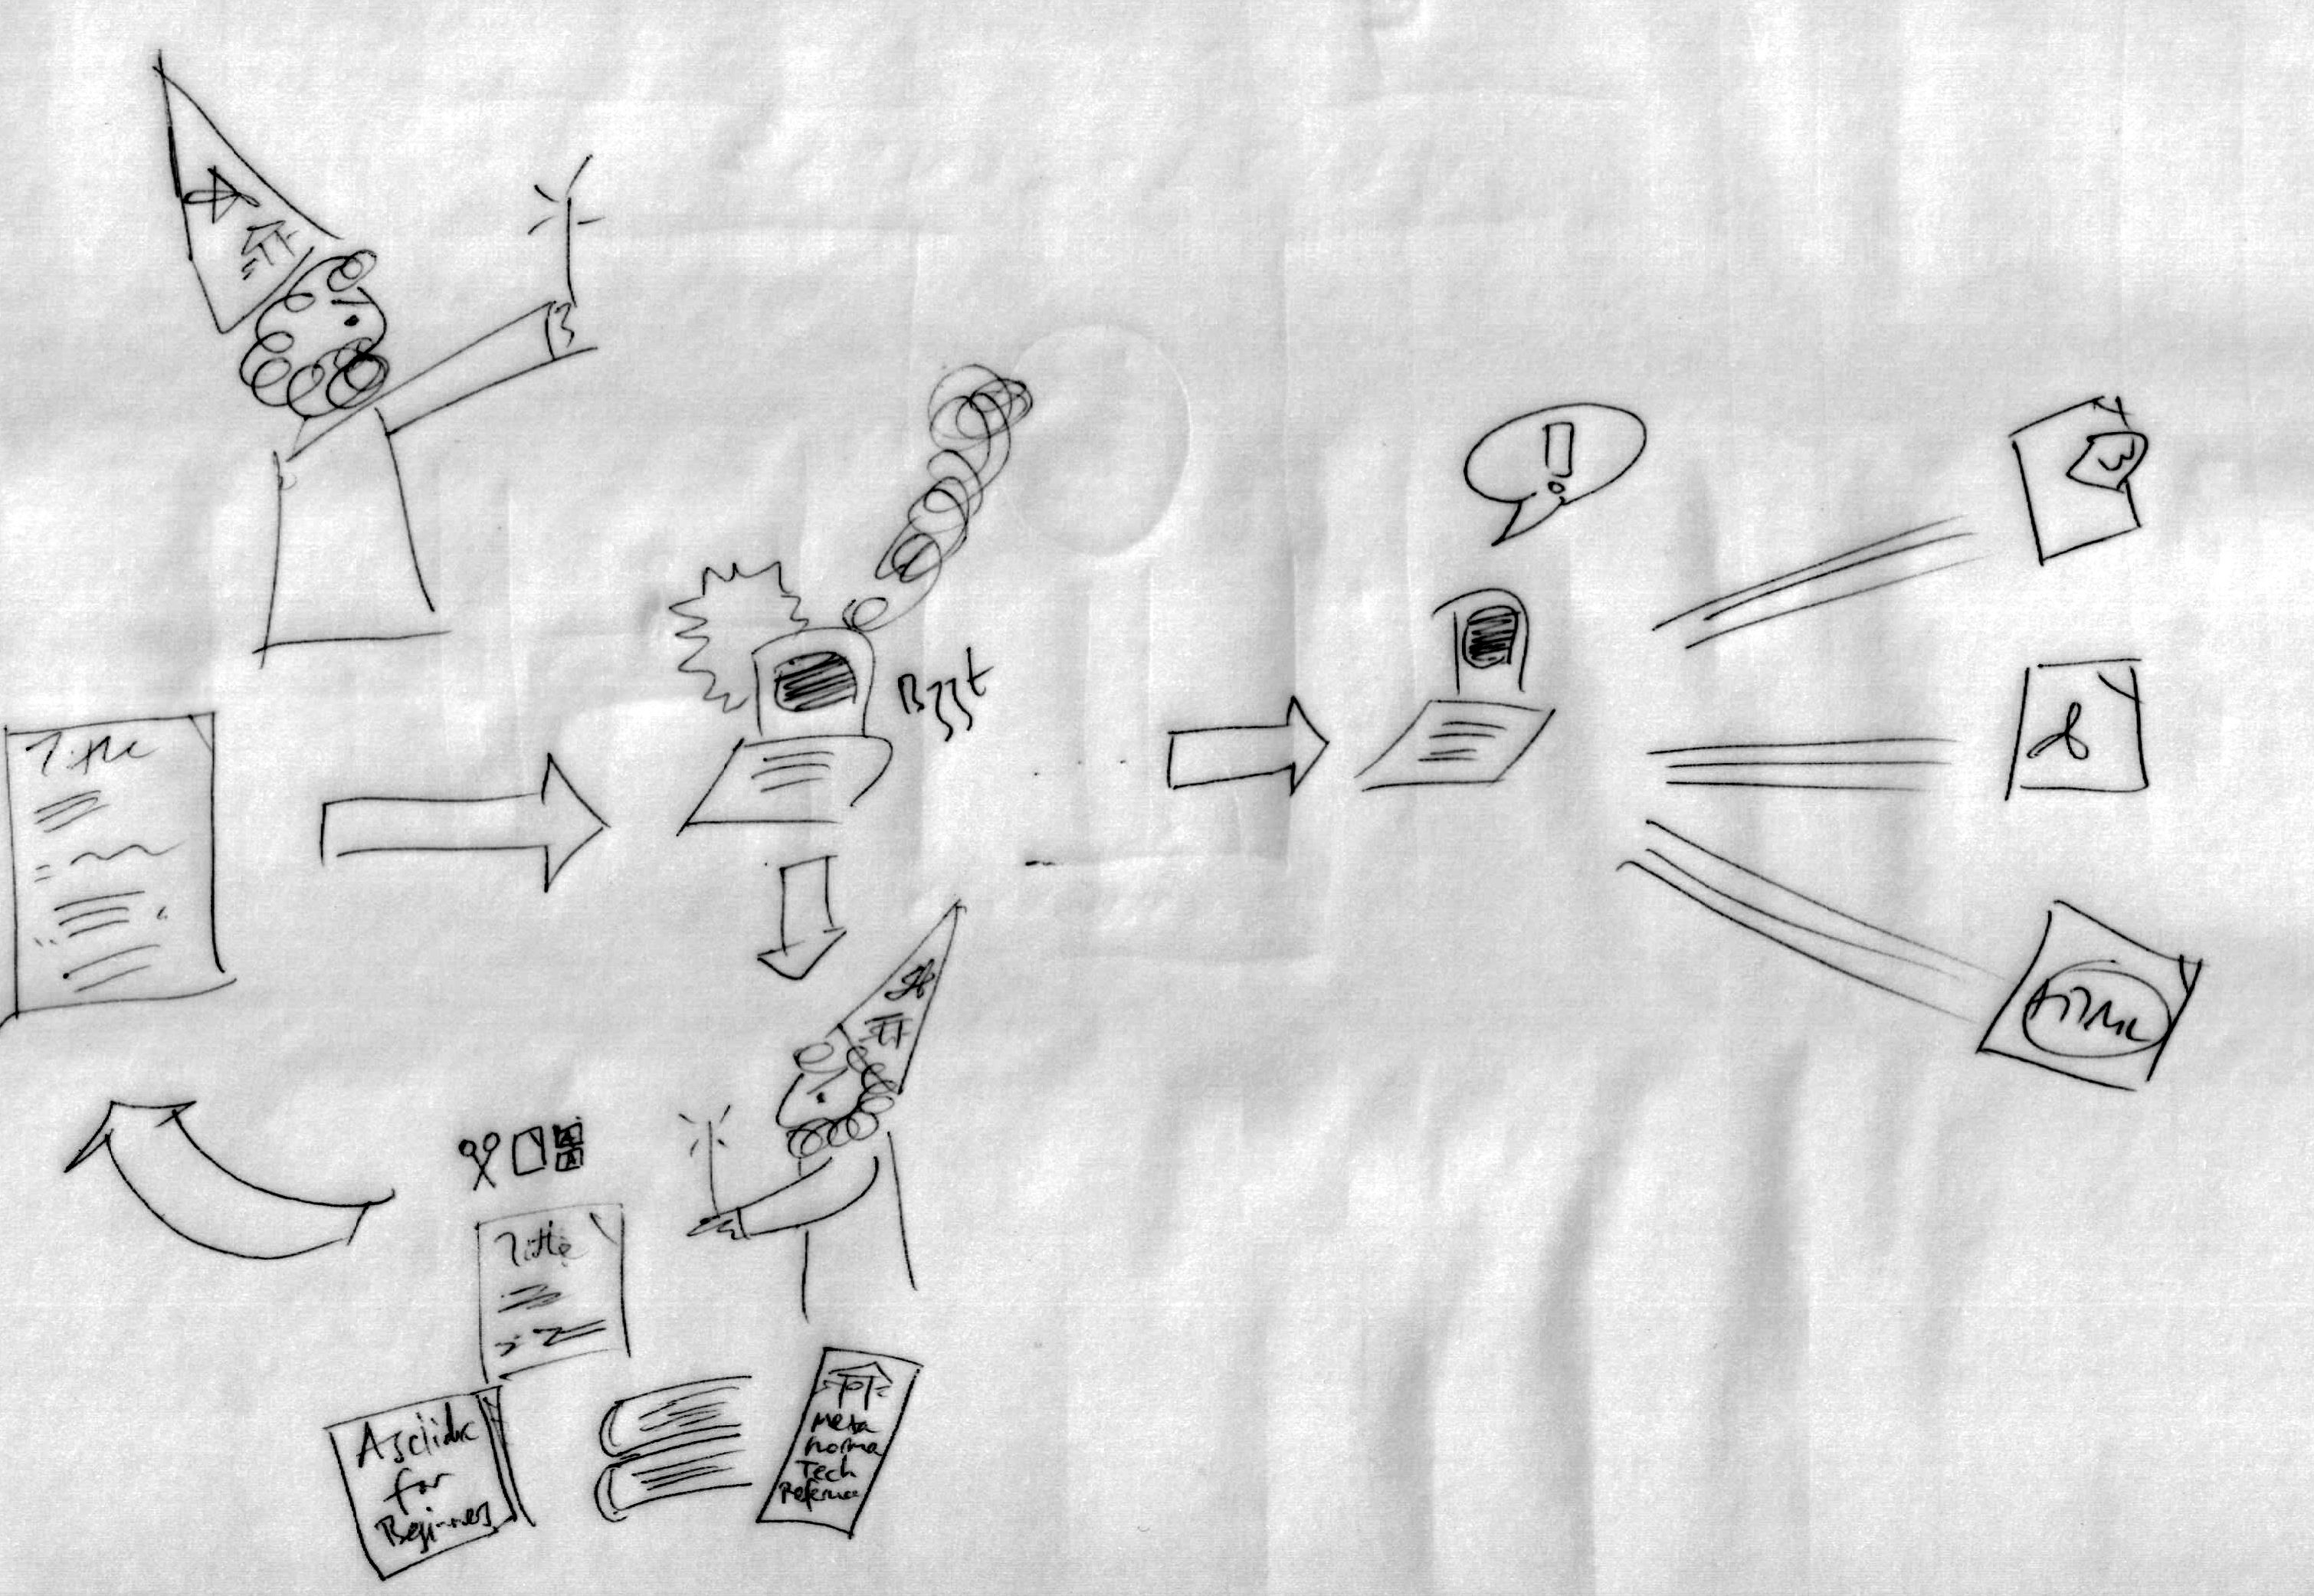 Title
Bzzt
!
W
HTML
A
Title
Asciidoc
for
Beginners
Meta
norma
Tech
Reference